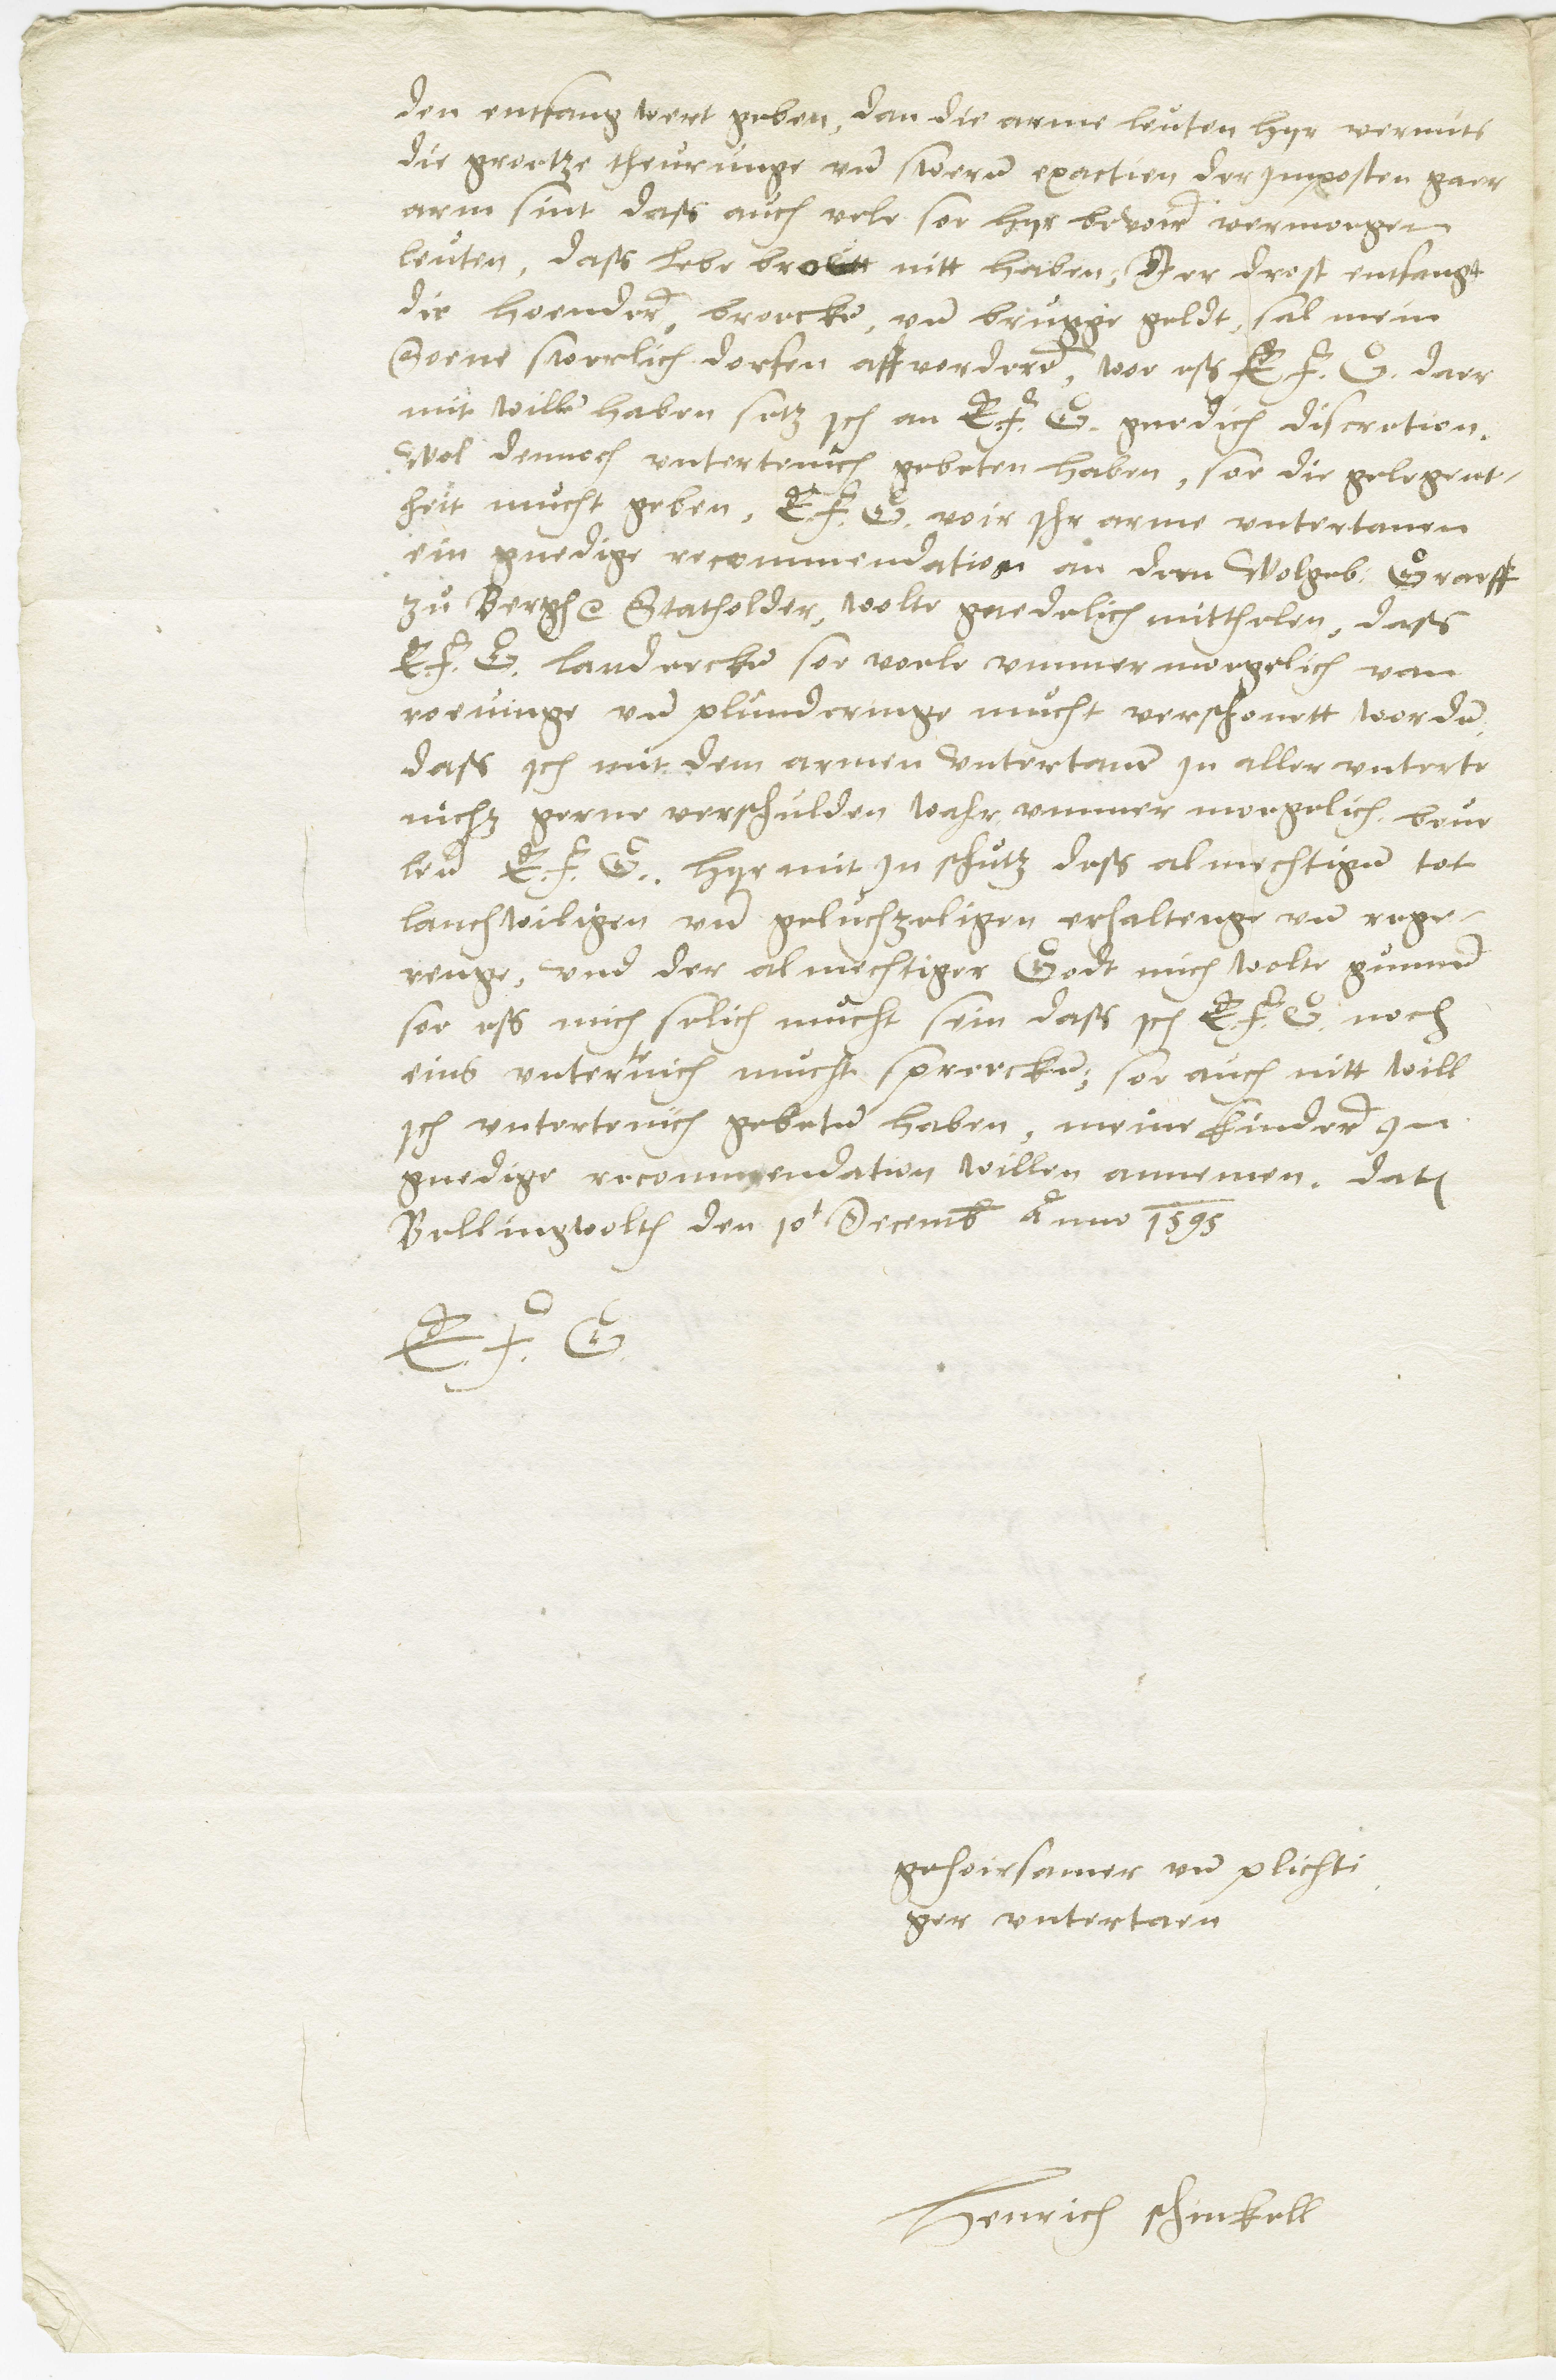 den entfang wert geben, dan die arme leuten hyr vermits
die grootze theurunge vnd swerū exactien der Imposten gaer
arm sint dass auch vele soe hyr bevoir vermoegen
leuten, dass liebe broett nitt haben, Der drost entfangt
die hoender, broecke, vnd brugge geldt, sal mein
Soene swerlich dorfen affvorderē, woe ess E F. G. daer
mit willē haben setz ich an E.F. G. gnedich discretion.
Wol dennoch vntertenich gebeten haben, soe die gelegent-
heit mucht geben, E.F. G. voir Ihr arme vntertanen
ein gnedige recommendation an dem Wolgeb. Graeff
zu Bergh Statholder, wolte gnedelich mitthelen, dass
E.F. G. landerckē soe voele vmmer moegelich van
roevinge vnd plunderinge mucht verschonett wordē,
dass ich mit dem armen vntertanē in aller vnterte
nichz gerne verschulden wahr vmmer moegelich. beve
len E. F. G.. hyr mit In schutz dess almechtigen tot
lanchwiligen vnd geluchzeligen erhaltenge vnd rege-
renge, vnd der almechtiger Godt mich wolte gunnen
soe ess mich selich mucht sein dass ich E.F. G. noch
eins vntertenich mucht sprecken, soe auch nitt will
ich vntertenich gebeten haben, meine kinder In
gnedige recommendation willen annemen. Dat
Bellingwolt den 10t Decemb Anno 1595
E F G.
gehoirsamer vnd plichti
ger vntertaen
Henrich schinkell